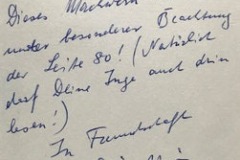 Dieses Machwerk
unter besonderer Beachtung
der Seite 80! (Natürlich
darf Deine Inge auch drin
lesen!)
In Freundschaft